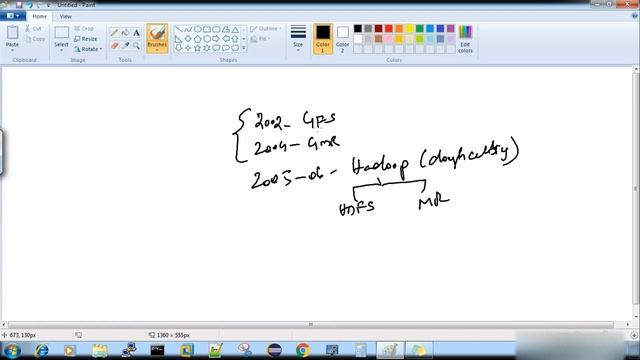 Untitled - Paint
Home View
Paste
Cut
Copy
Clipboard
Select
Crop
Resize
Rotate
Image
Tools
Brushes
Shapes
Outline
Fill
Size
Color 1
Color 2
Edit colors
Colors
2002- GFS
2004- GMR
2005-06 - Hadoop (
HDFS MR
673, 130px
1360 × 555px
100%